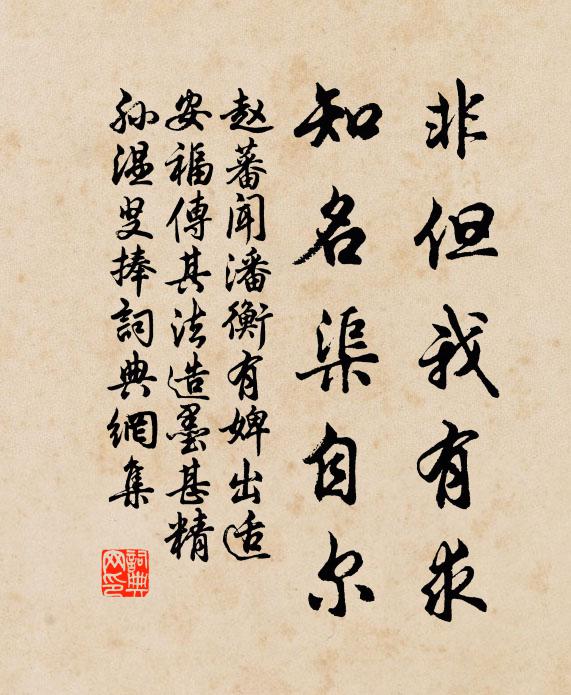 非但我有求
知名渠自尔
赵蕃闻潘衡有婢出适
安福傳其法造墨甚精
孙温叟捧詞典網集
詞典网印